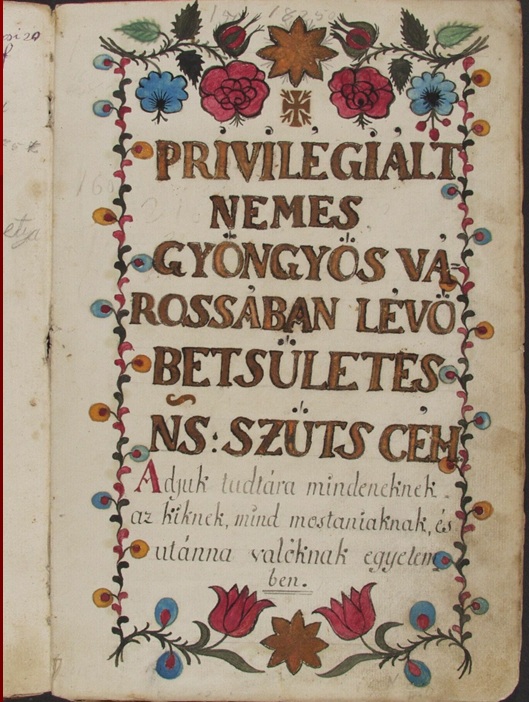 PRIVILÉGIÁLT
NEMES
GYÖNGYÖS VÁ-
ROSSÁBAN LÉVÖ
BETSÜLETES
NS: SZÜTS CÉH
Adjuk tudtára mindeneknek
az kiknek, mind mostaniaknak, és
utánna valóknak egyetem
ben.